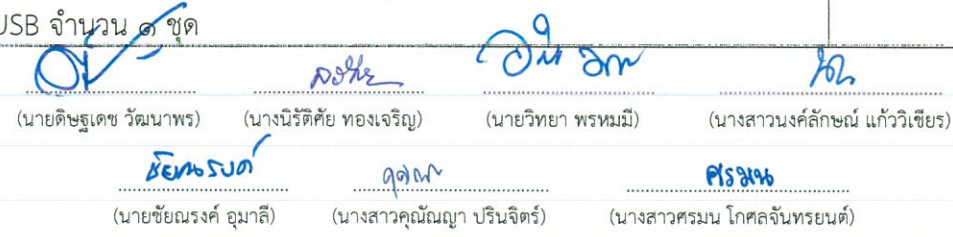 USB จำนวน ๑ ชุด
(นายดิษฐเดช วัฒนาพร) (นางนิรัติศัย ทองเจริญ) (นายวิทยา พรหมมี) (นางสาวนงค์ลักษณ์ แก้ววิเชียร)
ชัยณรงค์ ศรมน
(นายชัยณรงค์ อุมาลี) (นางสาวคุณัณญา ปรินจิตร์) (นางสาวศรมน โกศลจันทรยนต์)